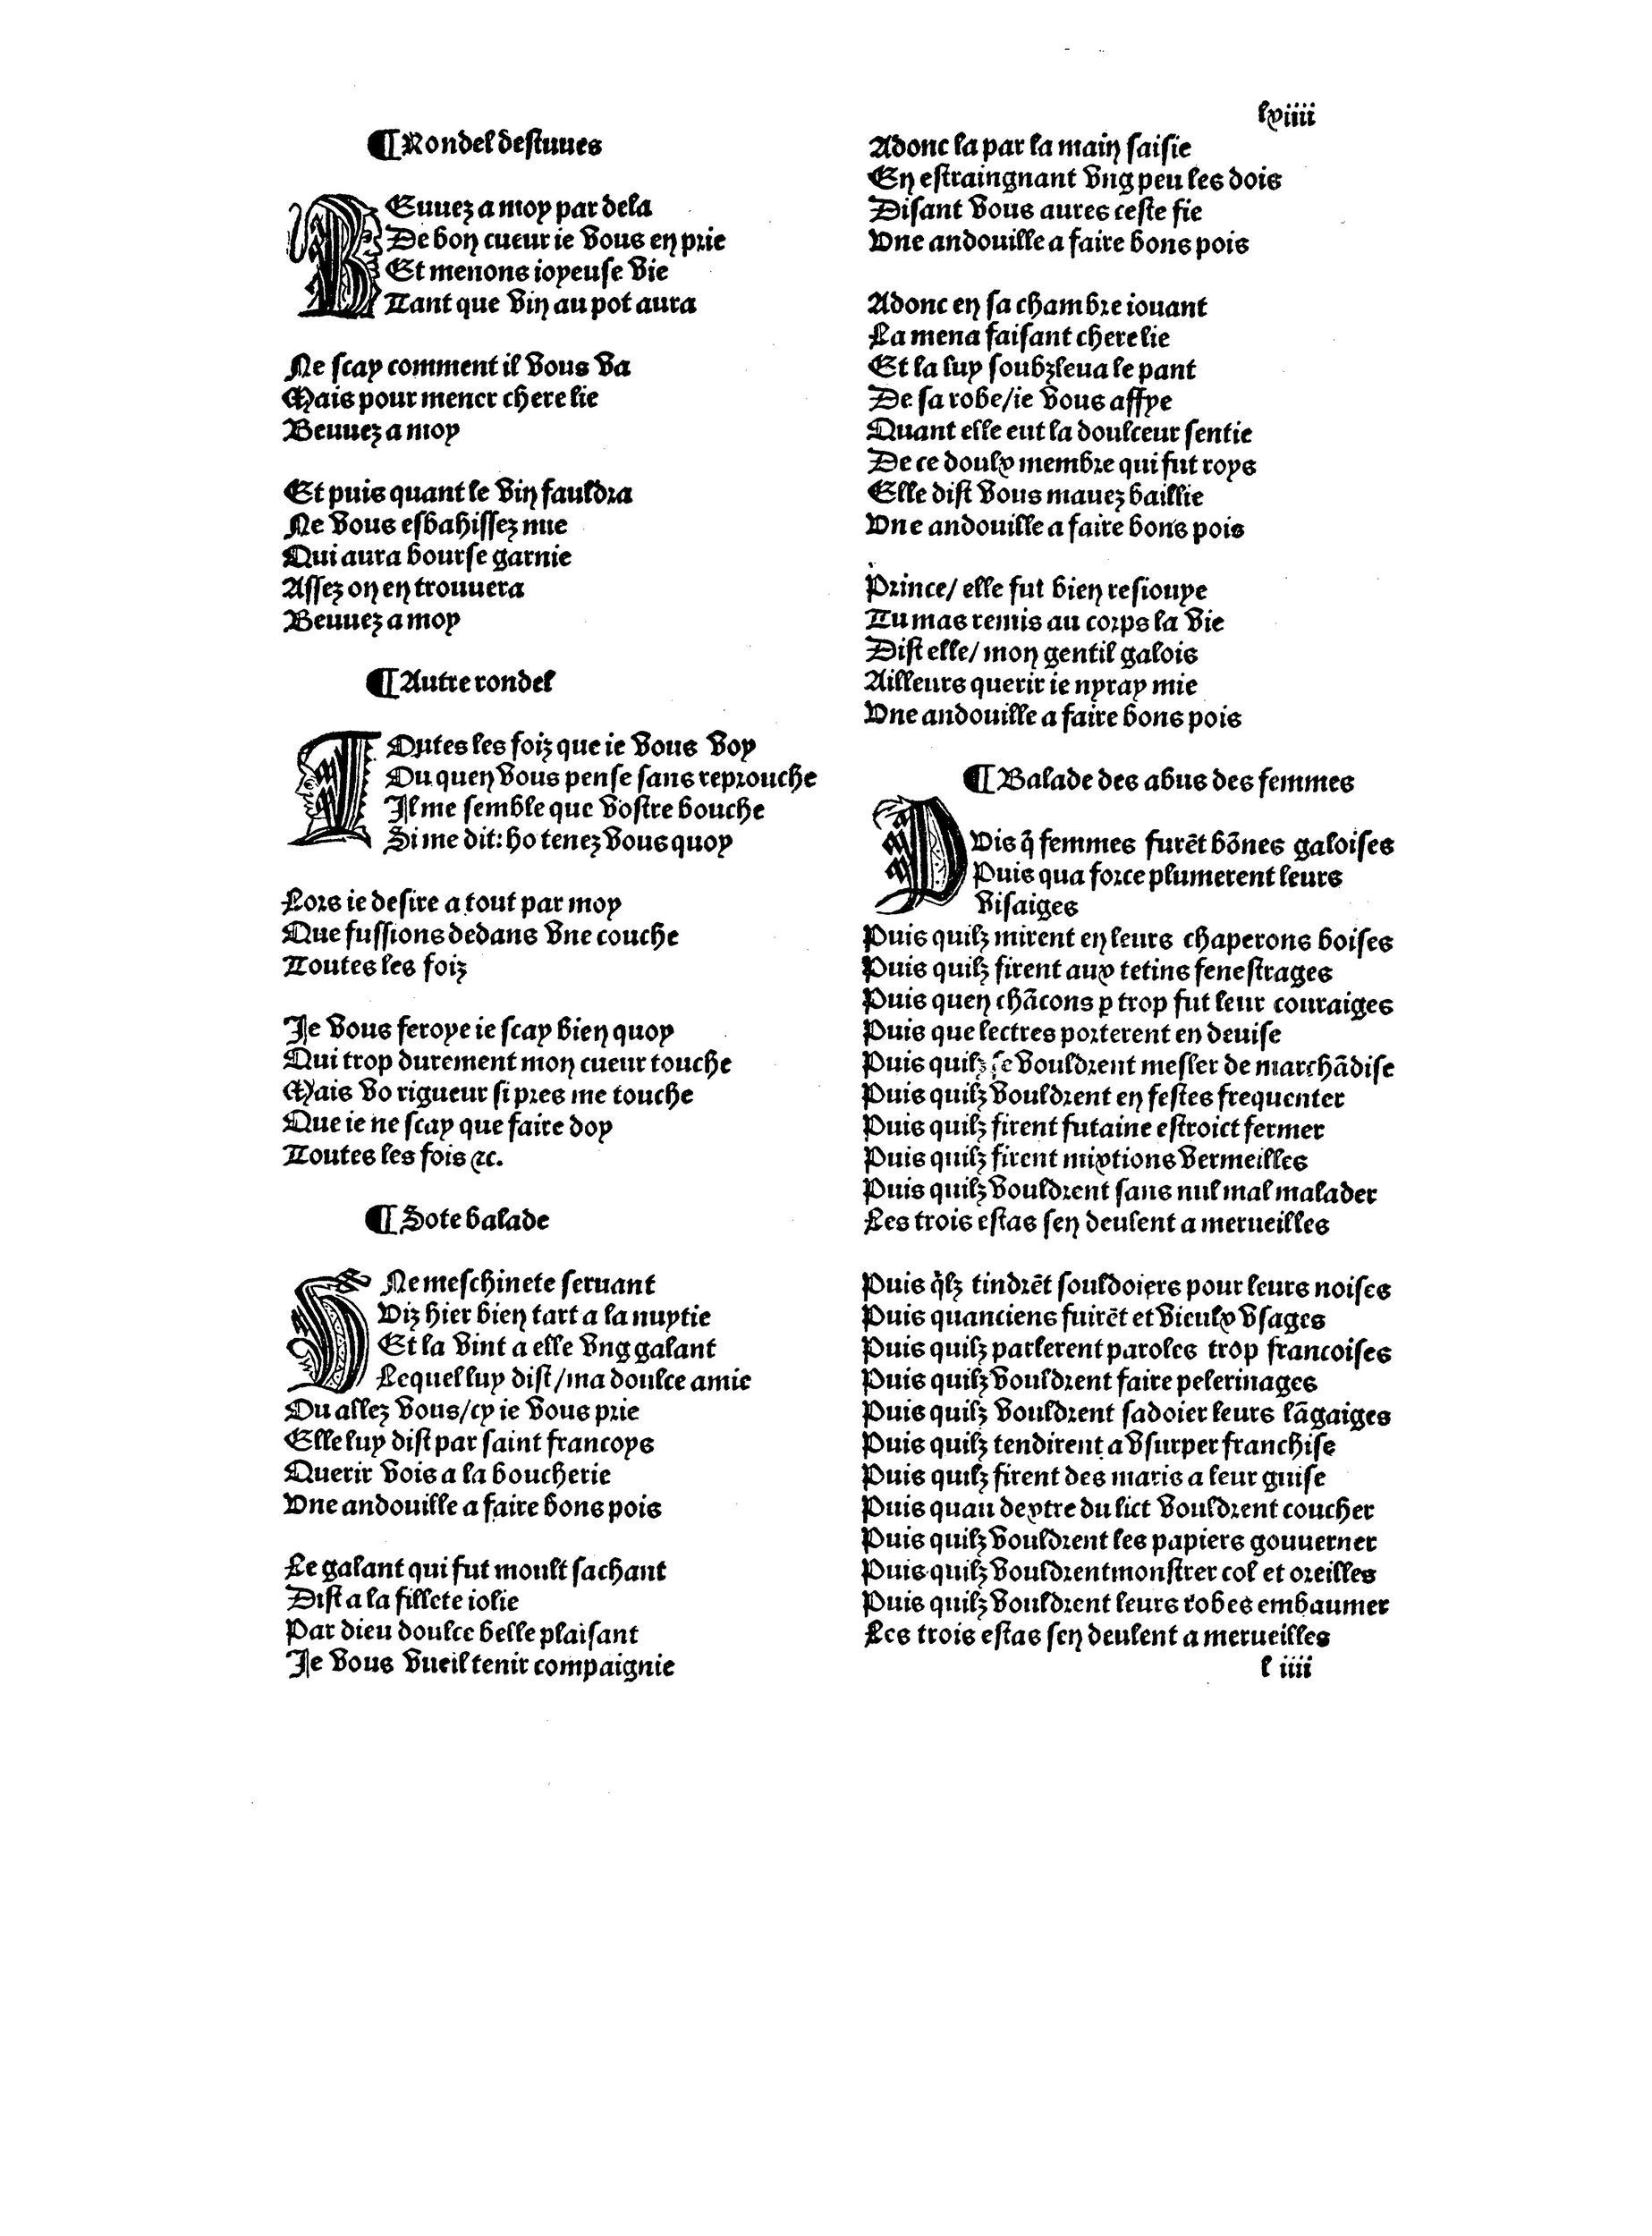 lxiiii
¶Rondel destuues
BEuuez a moy par dela
De bon cueur ie vous en prie
Et menons ioyeuse vie
Tant que vin au pot aura
Ne scay comment il vous va
Mais pour mener chere lie
Beuuez a moy
Et puis quant le vin fauldra
Ne vous esbahissez mie
Qui aura bourse garnie
Assez on en trouuera
Beuuez a moy
¶Autre rondel
TOutes les foiz que ie vous voy
Ou quen vous pense sans reprouche
Il me semble que vostre bouche
Si me dit: ho tenez vous quoy
Lors ie desire a tout par moy
Que fussions dedans vne couche
Toutes les foiz
Je vous feroye ie scay bien quoy
Qui trop durement mon cueur touche
Mais vo rigueur si pres me touche
Que ie ne scay que faire doy
Toutes les fois ⁊c.
¶Sote balade
VNe meschinete seruant
Viz hier bien tart a la nuytie
Et la vint a elle vng galant
Lequel luy dist/ma doulce amie
Ou allez vous/cy ie vous prie
Elle luy dist par saint francoys
Querir vois a la boucherie
Vne andouille a faire bons pois
Le galant qui fut moult sachant
Dist a la fillete iolie
Par dieu doulce belle plaisant
Je vous vueil tenir compaignie
Adonc la par la main saisie
En estraingnant vng peu les dois
Disant vous aures ceste fie
Vne andouille a faire bons pois
Adonc en sa chambre iouant
La mena faisant chere lie
Et la luy soubzleua le pant
De sa robe/ie vous affye
Quant elle eut la doulceur sentie
De ce doulx membre qui fut roys
Elle dist vous mauez baillie
Vne andouille a faire bons pois
Prince/ elle fut bien resiouye
Tu mas remis au corps la vie
Dist elle/ mon gentil galois
Ailleurs querir ie nyray mie
Vne andouille a faire bons pois
¶Balade des abus des femmes
PVis q̃ femmes furẽt bõnes galoises
Puis qua force plumerent leurs
visaiges
Puis quilz mirent en leurs chaperons boises
Puis quilz firent aux tetins fenestrages
Puis quen chãcons ꝑ trop fut leur couraiges
Puis que lectres porterent en deuise
Puis quilz se vouldrent mesler de marchãdise
Puis quilz vouldrent en festes frequenter
Puis quilz firent futaine estroict fermer
Puis quilz firent mixtions vermeilles
Puis quilz vouldrent sans nul mal malader
Les trois estas sen deulent a merueilles
Puis q̃lz tindrẽt souldoiers pour leurs noises
Puis quanciens fuirẽt et vieulx vsages
Puis quilz parlerent paroles trop francoises
Puis quilz vouldrent faire pelerinages
Puis quilz vouldrent sadoier leurs lãgaiges
Puis quilz tendirent a vsurper franchise
Puis quilz firent des maris a leur guise
Puis quau dextre du lict vouldrent coucher
Puis quilz vouldrent les papiers gouuerner
Puis quilz vouldrent monstrer col et oreilles
Puis quilz vouldrent leurs robes embaumer
Les trois estas sen deulent a merueilles
l iiii